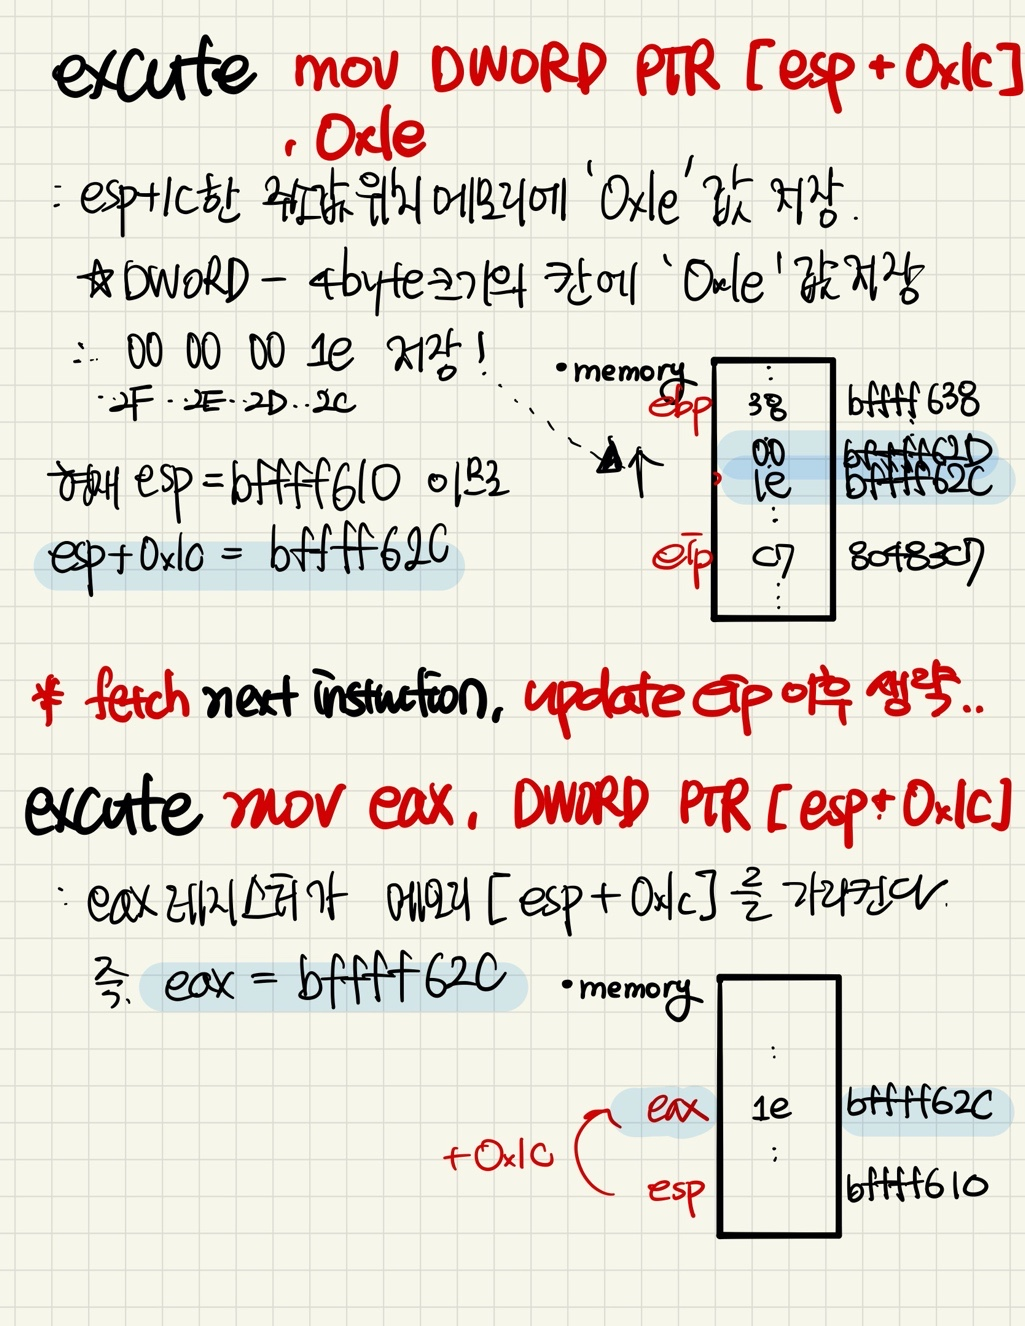 excute mov DWORD PTR [esp + 0x1c]
, 0x1e
: esp+1c한 위치 메모리에 '0x1e' 값 저장.
☆DWORD - 4byte크기의 칸에 '0x1e' 값 저장
∴ 00 00 00 1e 저장!
2F 2E 2D 2C
•memory
ebp 38 bffff638
00 bffff62D
1e bffff62C
현재 esp = bffff610 이므로
esp+0x1c = bffff62C
eip C7 80483C7
* fetch next instuction, update eip 이후 생략..
excute mov eax, DWORD PTR [esp+0x1c]
: eax 레지스터가 메모리 [esp + 0x1c] 를 가리킨다.
즉. eax = bffff62C
•memory
eax 1e bffff62C
+0x1C
esp bffff610